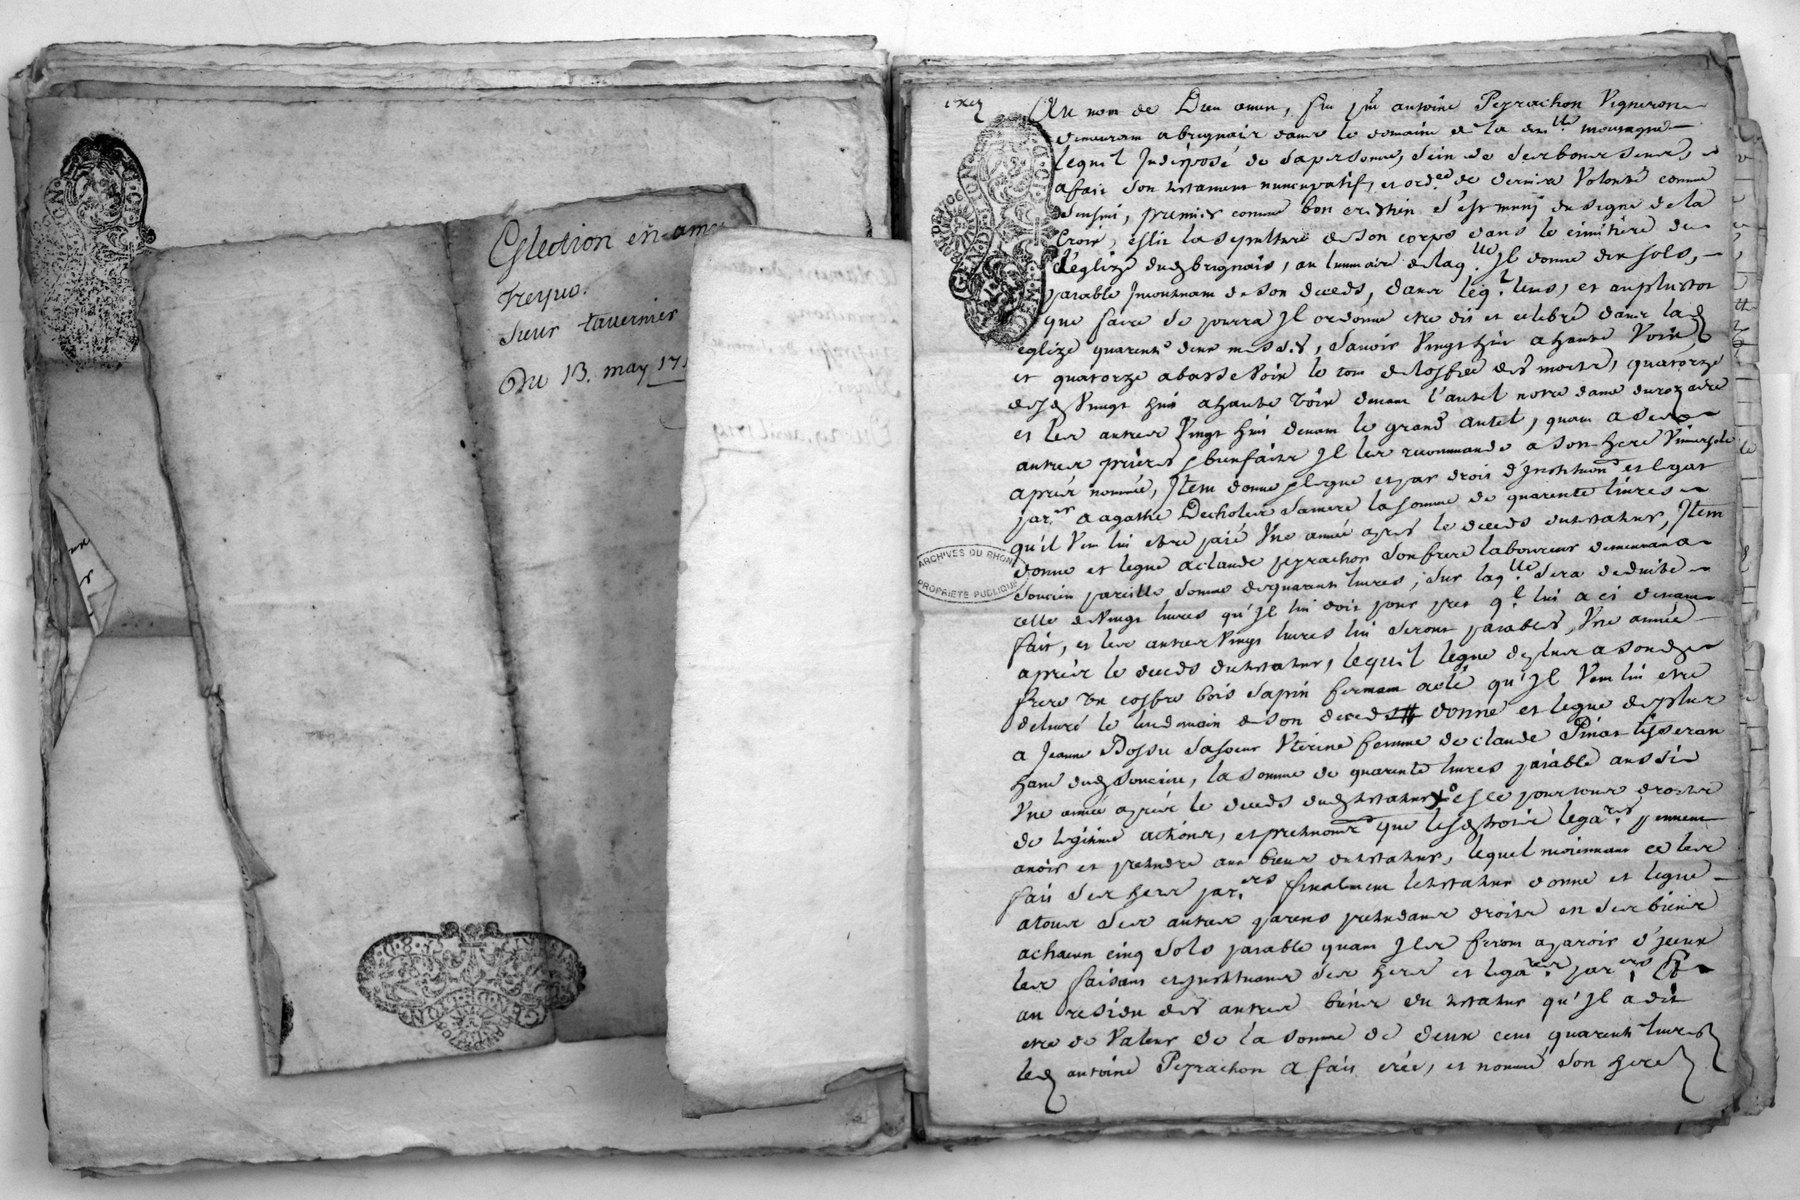 Eslection en amy
Du 13. may 17
Au nom de Dieu amen, fut pnt antoine Peyrachon Vigneron
demeurant a brignais dans le domaine de la dem.lle
lequel Indisposé de sa personne, sein de ses bons sens,
a fait son testament nuncupatif, et ord.ce de derniere Volonté comme
sensuit, premier comme bon crestien s'est muny du signe de la
Croix, eslit la sepulture de son corps dans le cimitiere de
l'eglize dud brignais, au luminaire de laq.lle Il donne dix sols,
paiable Incontinant de son deceds, dans leq.l tems, et au plustot
que faire se pourra Il ordonne etre dit et celebré dans lad
eglize quarente deux messes, savoir Vingt huit a haute Voix
et quatorze a basse Voix le tout de l'office des morts, quatorze
desd Vingt huit a haute Voix devant l'autel notre dame du rozaire
et les autres Vingt huit devant le grand autel, quant a ses
autres prieres bienfaits Il les recommande a son here Universele
apres nommée, Item donne legue et par droit d'Institution et legat
par.er a agathe Decholier sa mere la somme de quarente livres
qu'il Veut lui etre paié Une année apres le deceds du testateur, Item
donne et legue a claude peyrachon son frere laboureur demeurant a
soucieu pareille somme de quarente livres, sur laq.lle sera deduite
celle de Vingt livres qu'Il lui doit pour pret q.l lui a ci devant
fait, et les autres Vingt livres lui seront paiables, Une année
apres le deceds du testateur, lequel legue de plus a sond
frere Un coffre bois sapin fermant a clé qu'Il Veut lui etre
delivré le lendemain de son deceds donne et legue de plus
a Jeanne Bossu sa soeur Uterine femme de claude Pinat tisseran
hant dud soucieu, la somme de quarente livres paiable aussi
Une année apres le deceds dud testateur et ce pour tous droits
de legitime actions, et pretentions que lesd trois legat.res peuvent
avoir et pretendre aux biens du testateur, lequel moiennant ce les
fait ses hers par.ers finalement le testateur donne et legue
a tous ses autres parens pretendans droits en ses biens
a chacun cinq sols paiable quant Ils feront aparoir d'Iceux
les faisant et Instituant ses hers et legat.res par.ers
au residu des autres biens du testateur qu'Il a dit
etre de Valeur de la somme de deux cent quarente livres
led antoine Peyrachon a fait créé, et nommé son here
ARCHIVES DU RHONE
PROPRIETE PUBLIQUE